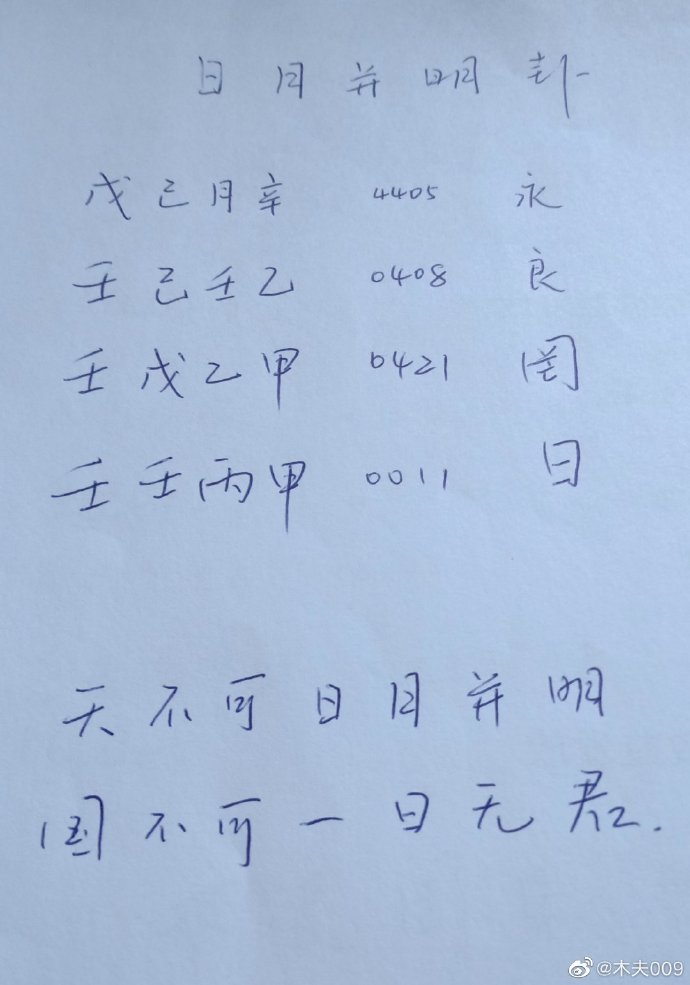 日月并明卦
戊己月辛 4405 永
壬己壬乙 0408 良
壬戊乙甲 0421 罔
壬壬丙甲 0011 日
天不可日月并明
国不可一日无君.
@木夫009